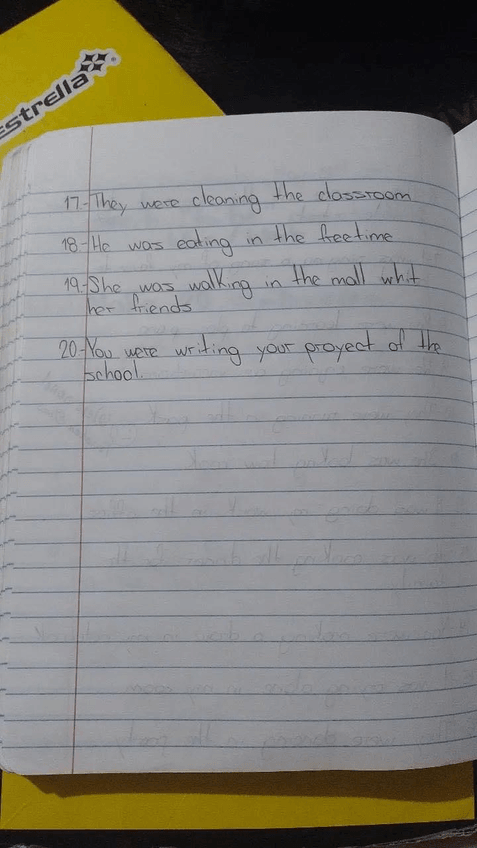 Estrella
17.-They were cleaning the classroom
18-He was eating in the freetime
19.-She was walking in the mall whit
her friends
20.-You were writing your proyect of the
school.